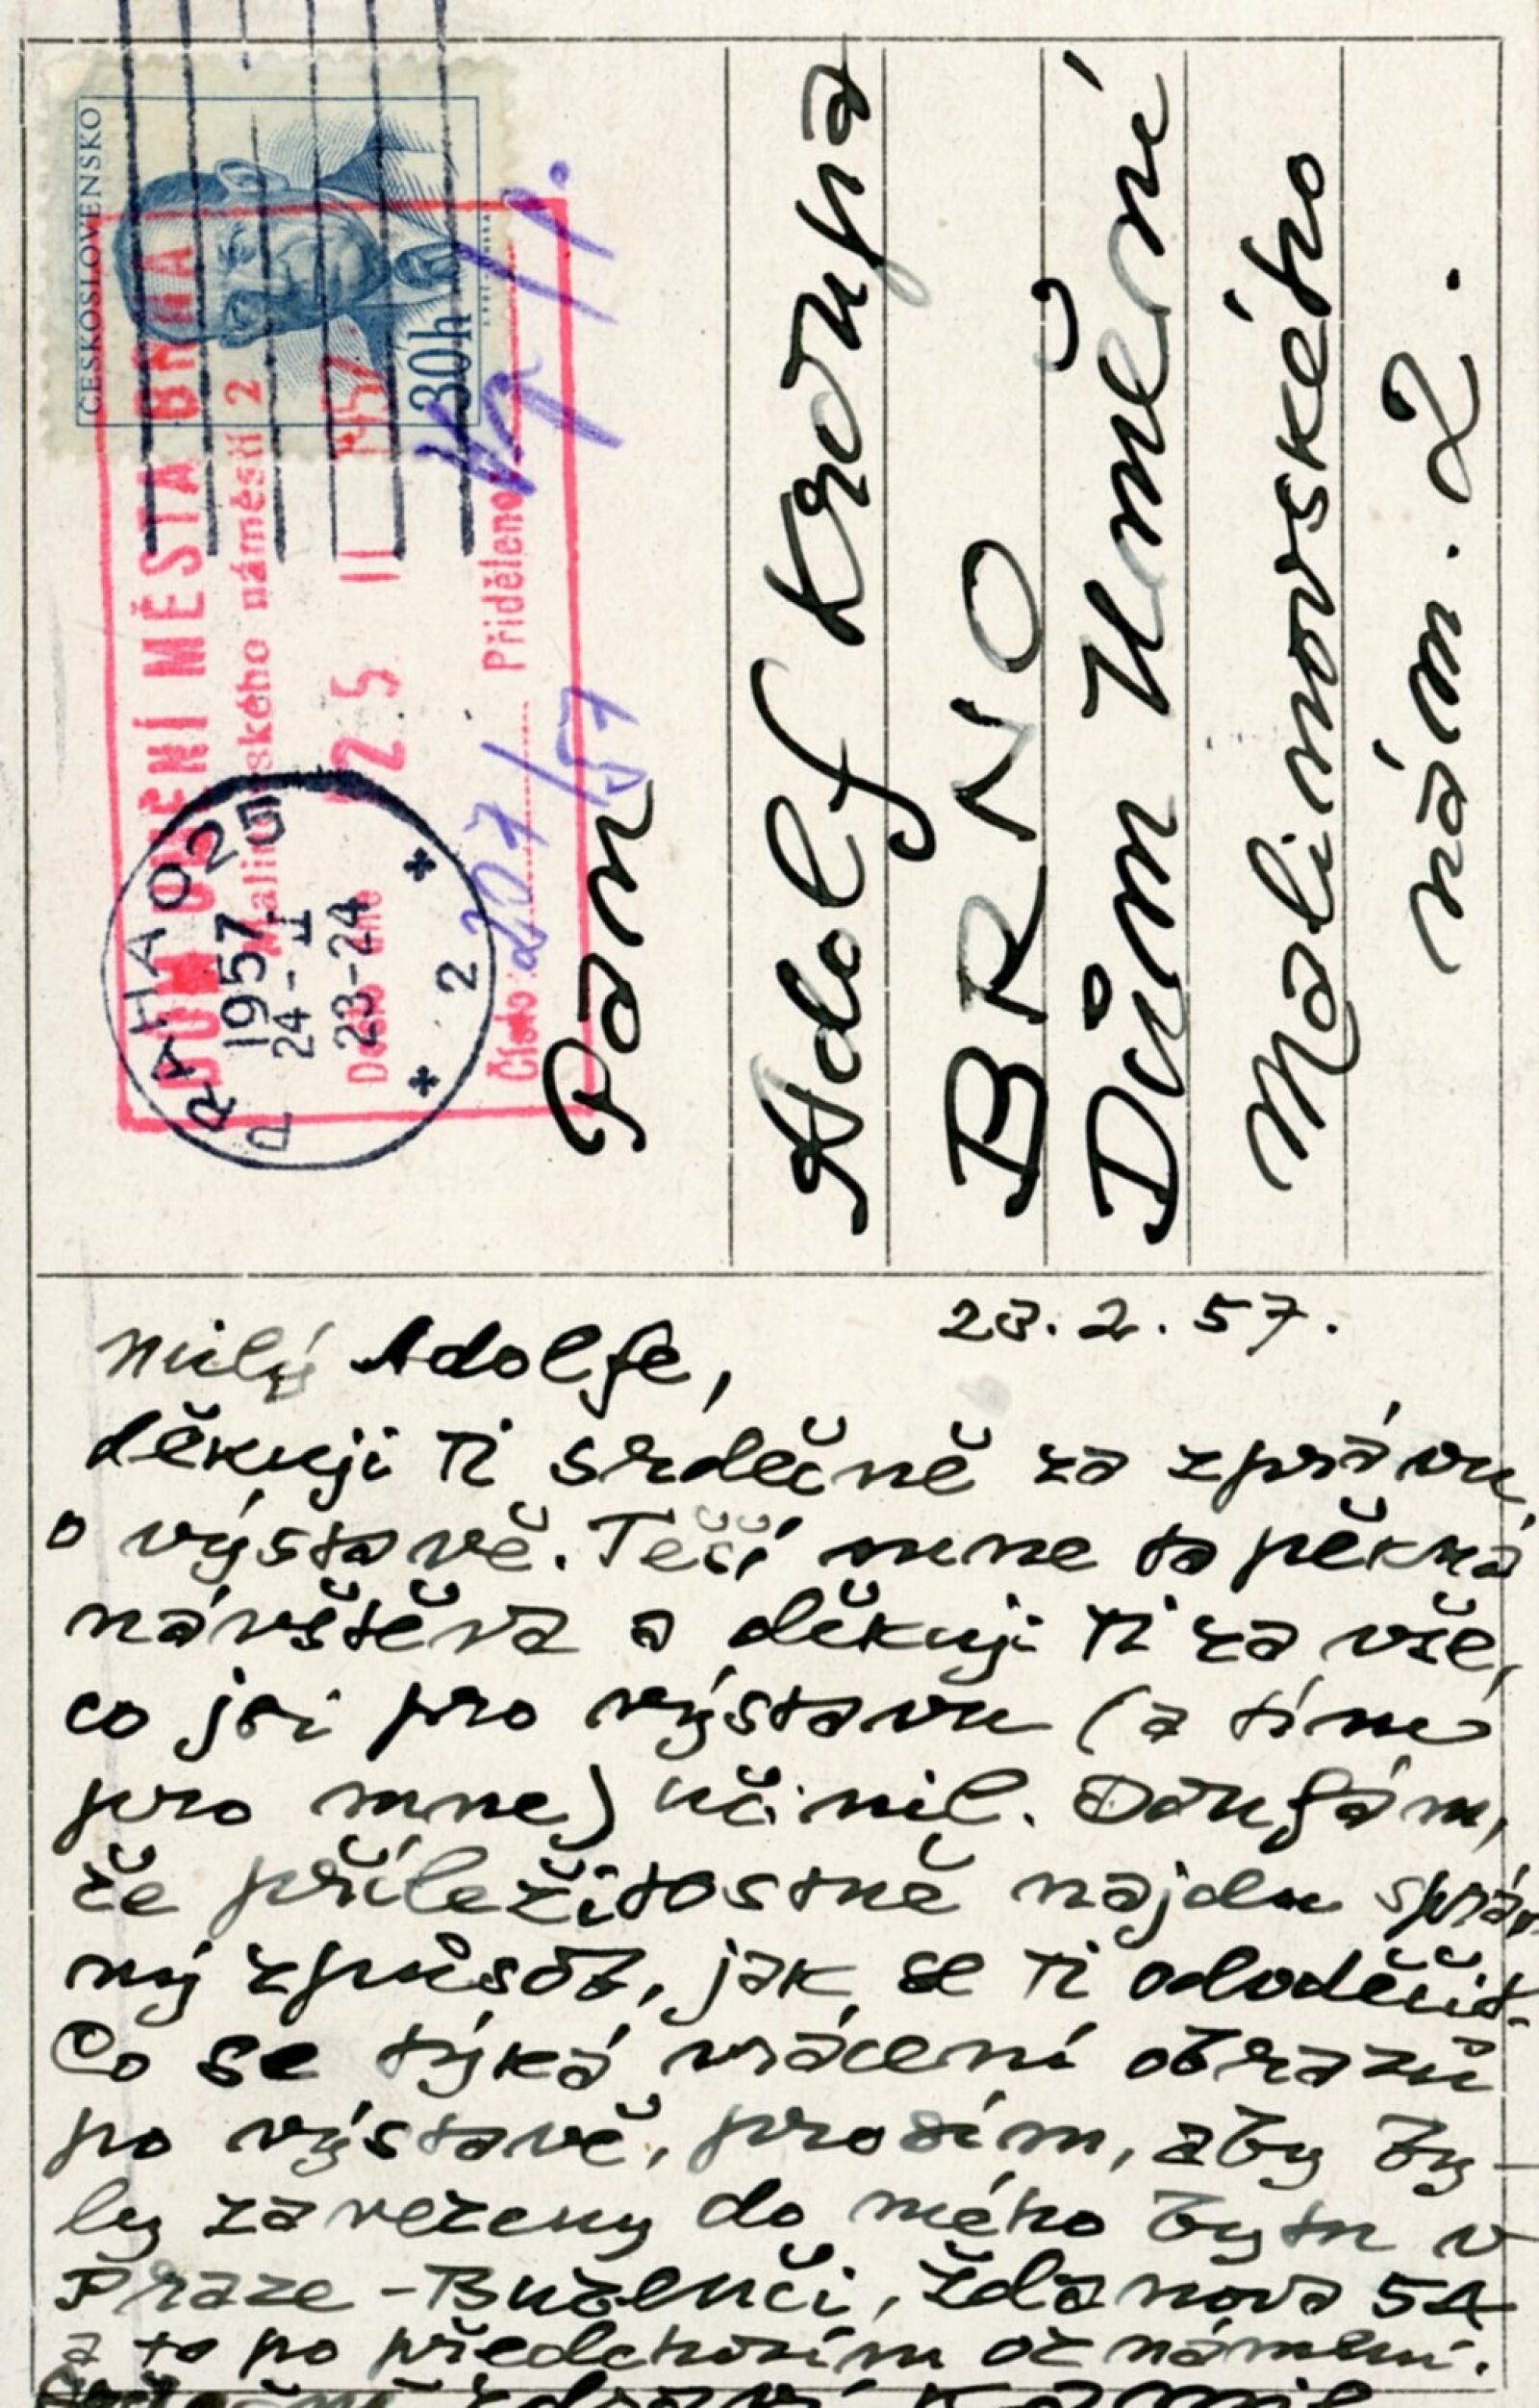 ČESKOSLOVENSKO
30h
PRAHA 025
1957
24-II
23-24
* 2 *
DŮM UMĚNÍ MĚSTA BRNA
Malinovského náměstí 2
Došlo dne 25 II 1957
Číslo: 207/57 Přiděleno
Pan
Adolf Kroupa
BRNO
Dům Umění
Malinovského
nám. 2.
23.2.57.
Milý Adolfe,
děkuji Ti srdečně za zprávu
o výstavě. Teší mne ta pěkná
návštěva a děkuji Ti za vše,
co jsi pro výstavu (a tím
pro mne) učinil. Doufám,
že příležitostně najdu správ
ný způsob, jak se Ti odvděčit.
Co se týká vrácení obrazů
po výstavě, prosím, aby by-
ly zavezeny do mého bytu v
Praze - Bubenči, Ždanova 54
a to po předchozím oznámení.
Srdečně zdraví Kamil